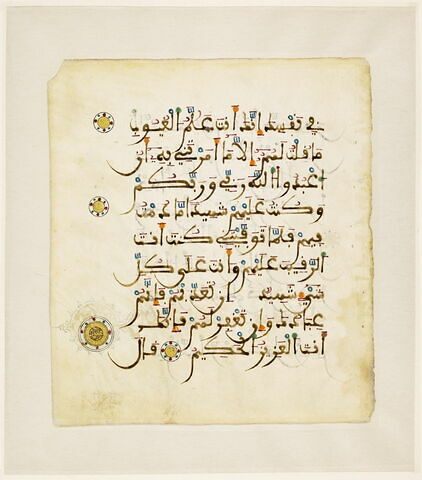 في نفسك إنك أنت علم الغيوب
ما قلت لهم إلا ما أمرتني به أن
اعبدوا الله ربي وربكم
وكنت عليهم شهيدا ما دمت
فيهم فلما توفيتني كنت أنت
الرقيب عليهم وأنت على كل
شيء شهيد إن تعذبهم فإنهم
عبادك وإن تغفر لهم فإنك
أنت العزيز الحكيم قال